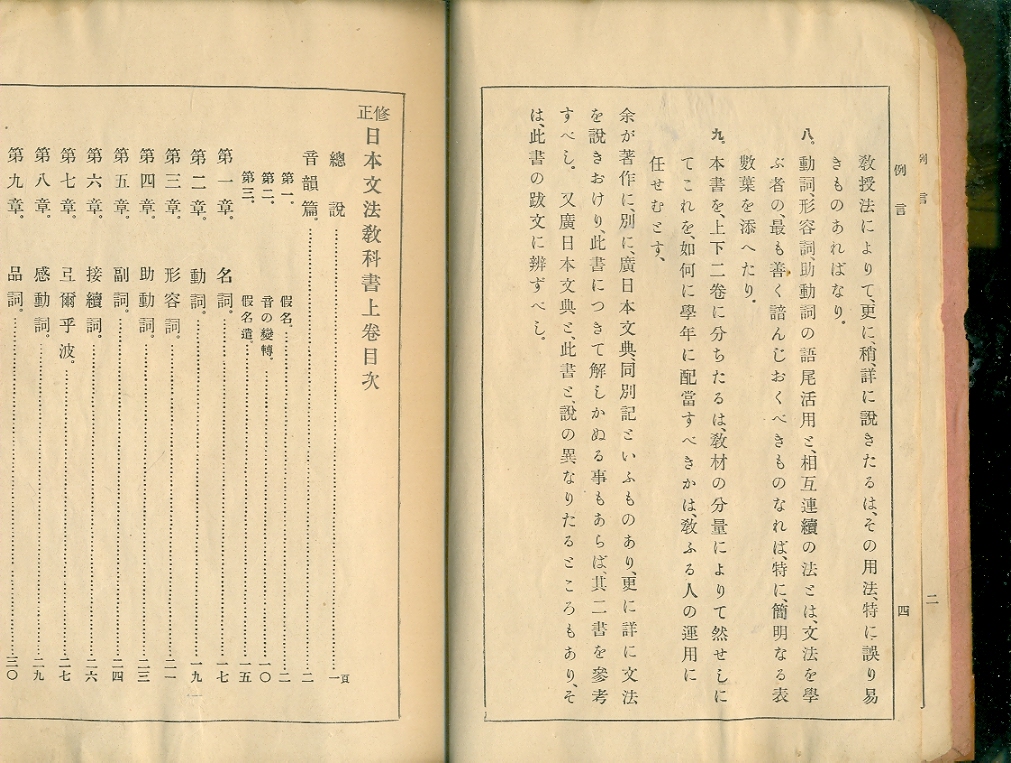 例言
二
例言
四
敎授法によりて、更に、稍、詳に說きたるは、その用法、特に誤り易
きものあればなり。
八。動詞形容詞、助動詞の語尾活用と、相互連續の法とは、文法を學
ぶ者の、最も善く諳んじおくべきものなれば、特に、簡明なる表
數葉を添へたり。
九。本書を、上下二卷に分ちたるは、敎材の分量によりて然せしに
てこれを、如何に學年に配當すべきかは、敎ふる人の運用に
任せむとす。
余が著作に、別に、廣日本文典、同別記といふものあり、更に詳に文法
を說きおけり、此書につきて解しかぬる事もあらば、其二書を參考
すべし。又廣日本文典と、此書と、說の異なりたるところもあり、そ
は、此書の跋文に辨ずべし。
修正日本文法敎科書上卷目次
總說……一頁
音韻篇。……二
第一。假名。……二
第二。音の變轉。……一〇
第三。假名遣。……一五
第一章。名詞。……一七
第二章。動詞。……一九
第三章。形容詞。……二一
第四章。助動詞。……二三
第五章。副詞。……二四
第六章。接續詞。……二六
第七章。弖爾乎波。……二七
第八章。感動詞。……二九
第九章。品詞。……三〇